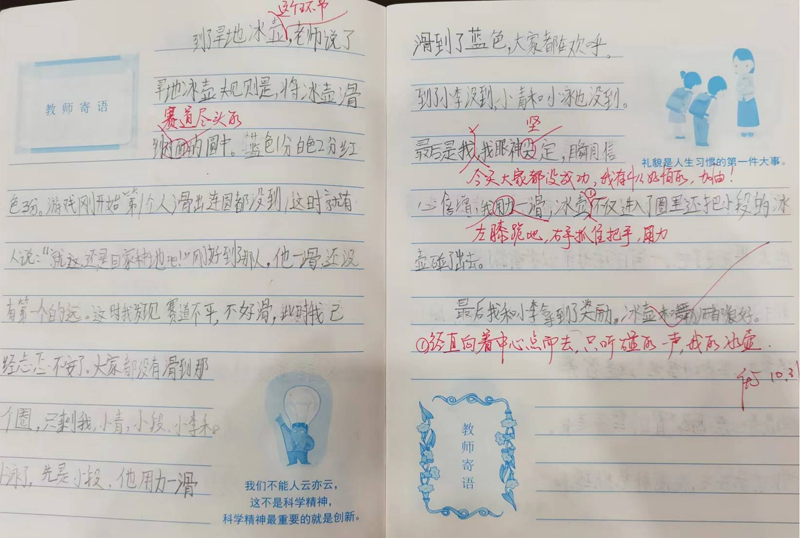 这个环节
到了旱地冰壶,老师说了
旱地冰壶规则是,将冰壶滑
赛道尽头的
到 的圈中。蓝色1分白色2分红
色3分。游戏刚开始第1个人滑出连圈都没到,这时就有
人说:“就这还是自家场地吧!”刚好到那人,他一滑还没
有第一个的远。这时我发现赛道不平,不好滑,此时我已
经忐忑不安了。大家都没有滑到那
个圈,只剩我,小青,小段,小李和
小泳了,先是小段,他用力一滑
教师寄语
我们不能人云亦云,
这不是科学精神,
科学精神最重要的就是创新。
滑到了蓝色,大家都在欢乎。
到了小李没到,小青和小泳也没到。
坚
最后是我,我眼神 定,瞬间信
今天大家都没成功,我有什么好怕的,加油!
心倍增,我用力一滑,冰壶①不仅进入了圈里还把小段的冰
左膝跪地,右手抓住把手,用力
壶碰了出去。
最后我和小李拿到了奖励。冰壶 很好。
①径直向着中心点冲去,只听 的一声,我的冰壶.
10.31
礼貌是人生习惯的第一件大事。
教师寄语